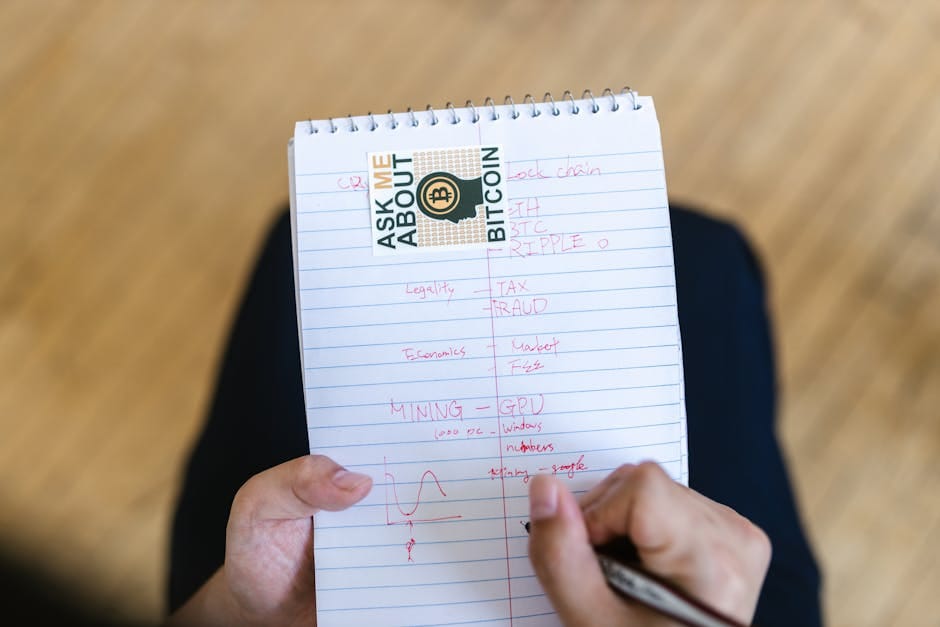 ASK ME
ABOUT
BITCOIN
ock chain
TH
BTC
RIPPLE
Legality - TAX
- FRAUD
Economics - Market
- FEE
MINING - GPU
1000 PC - Windows
numbers
Mining - google